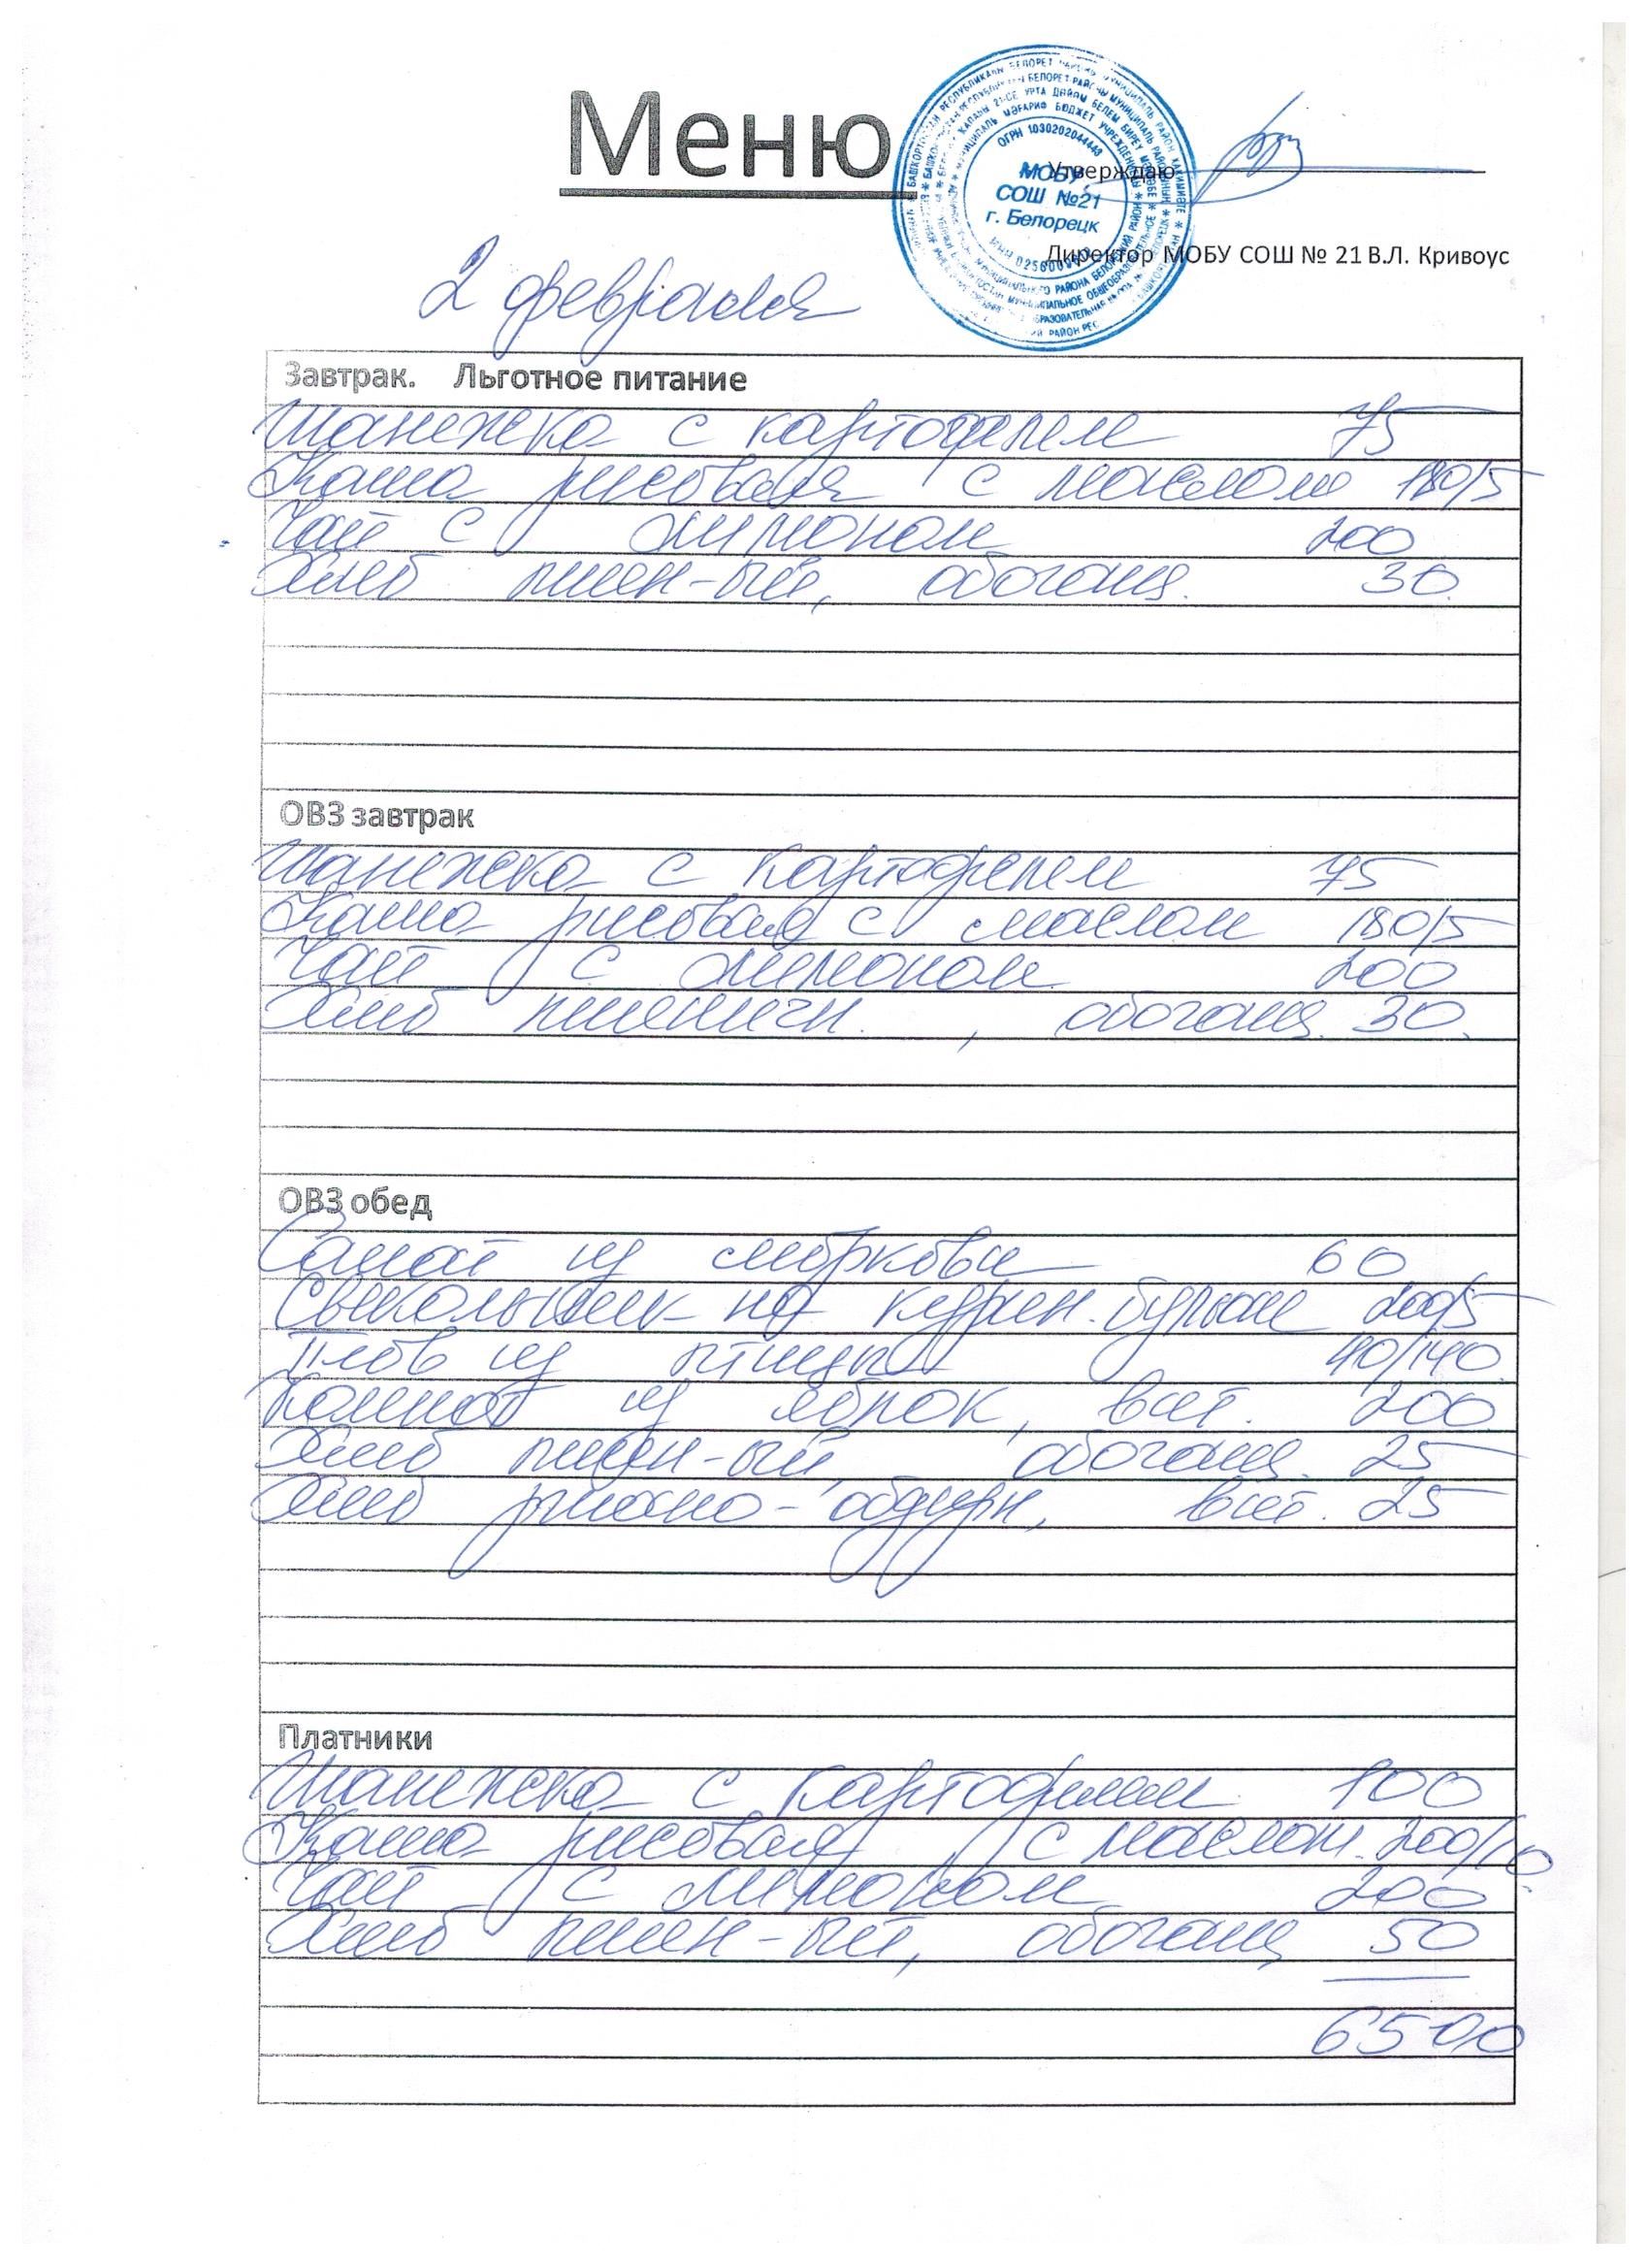 Меню
МОБУ
СОШ №21
г. Белорецк
ОГРН 1030202044448
Утверждаю
Директор МОБУ СОШ № 21 В.Л. Кривоус
2 февраля
Завтрак. Льготное питание
Шанежка с картофелем 75
Каша рисовая с маслом 180/5
Чай с лимоном 200
Хлеб пшен-ый, обогащ. 30
ОВЗ завтрак
Шанежка с картофелем 75
Каша рисовая с маслом 180/5
Чай с лимоном 200
Хлеб пшеничн., обогащ. 30
ОВЗ обед
Салат из моркови 60
Свекольник на курин. бульоне 200/5
Плов из птицы 40/140
Компот из яблок, вит. 200
Хлеб пшен-ый, обогащ. 25
Хлеб ржано-обдирн, вит. 25
Платники
Шанежка с картофелем 100
Каша рисовая с маслом. 200/10
Чай с лимоном 200
Хлеб пшен-ый, обогащ 50
65-00